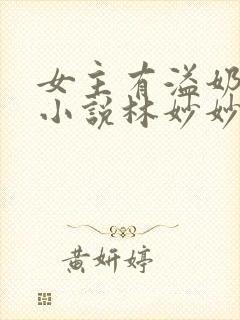 女主有溢奶
小说林妙妙
黄妍婷